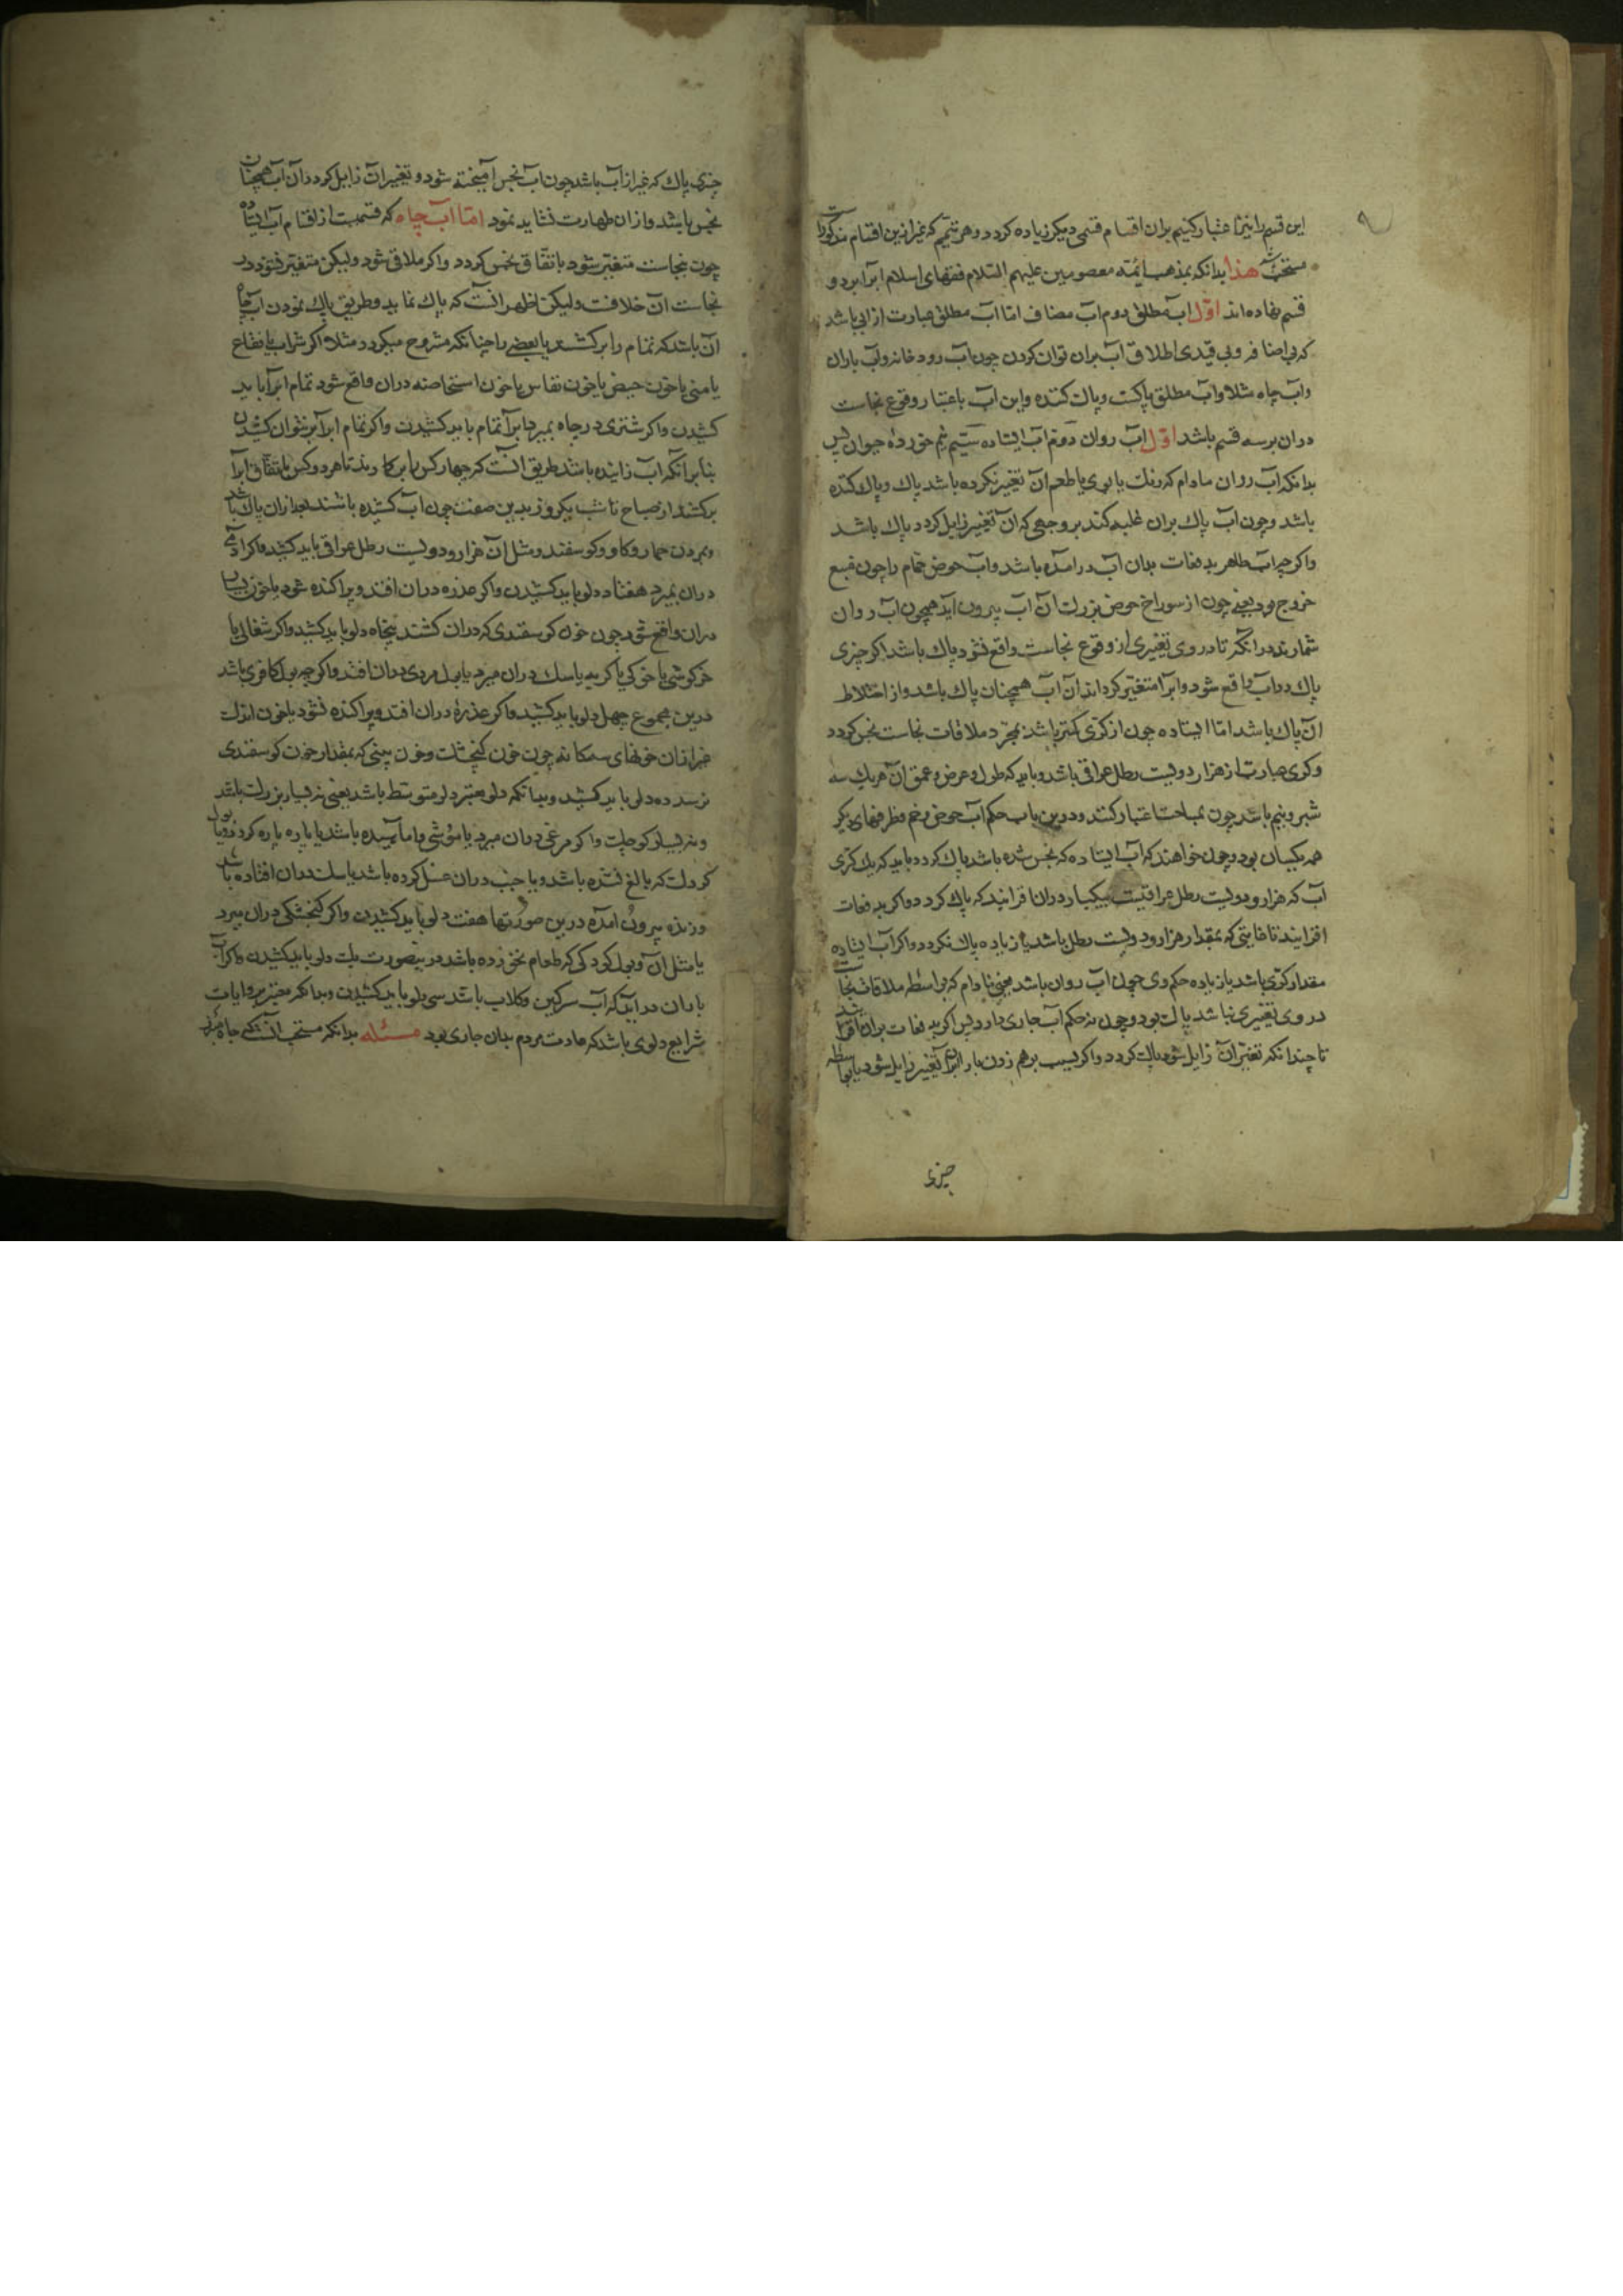 این قسم را نیز اعتبار کنیم بران اقسام قسمی دیکر زیاده کردد و هر تیمم که غیر ازین اقسام مذکورات
مستحبّست هذا بدانکه بمذهب ائمّه معصومین علیهم السّلام فقهای اسلام ابرا بر دو
قسم نهاده اند اوّل اب مطلق دوم اب مضاف امّا اب مطلق عبارت از ابی باشد
که بی اضافه و بی قیدی اطلاق اب بران توان کردن چون اب رودخانه و اب باران
و اب چاه مثلا و اب مطلق پاکست و پاک کننده و این اب باعتبار وقوع نجاست
دران بر سه قسم باشد اوّل اب روان دوّم اب ایستاده سیّم نیم خورده حیوان پس
بدانکه اب روان مادام که رنک یا بوی یا طعم ان تغیر نکرده باشد پاک و پاک کننده
باشد و چون اب پاک بران غلبه کند بر وجهی که ان تغیر زایل کردد پاک باشد
واکرچه اب طاهر بدفعات بدان اب درامده باشد و اب حوض حمام را چون منبع
خروج بود یعنی چون از سوراخ حوض بزرک ان اب بیرون اید همچون اب روان
شمارند در انکه تا در وی تغیری از وقوع نجاست واقع نشود پاک باشد اکر چیزی
پاک در اب واقع شود و ابرا متغیّر کرداند ان اب همچنان پاک باشد و از اختلاط
ان پاک باشد امّا ایستاده چون از کری کمتر باشد بمجرّد ملاقات نجاست نجس کردد
و کری عبارت از هزار و دویست رطل عراقی باشد و باید که طول و عرض و عمق ان هر یک سه
شبر و نیم باشد چون بمساحت اعتبار کنند و درین باب حکم اب حوض و خم و ظرفهای دیکر
همه یکسان بود و چون خواهند که اب ایستاده که نجس شده باشد پاک کردد باید که یک کری
اب که هزار و دویست رطل عراقیست بیکبار دران افزایند که پاک کردد و اکر بدفعات
افزایند تا غایتی که بمقدار هزار و دویست رطل باشد یا زیاده پاک نکردد و اکر اب ایستاده
مقدار کری باشد یا زیاده حکم وی چون اب روان باشد یعنی مادام که بواسطه ملاقات نجاست
در وی تغیری نباشد پاک بود و چون نه حکم اب جاری دارد پس اکر بدفعات بران افزایند
تا چندانکه تغیّر ان زایل شود پاک کردد و اکر بسبب برهم زدن باد ان تغیر زایل شود یا بواسطه
چیزی
چیزی پاک که غیر از اب باشد چون اب نجس امیخته شود و تغیر ان زایل کردد ان اب همچنان
نجس باشد و ازان طهارت نشاید نمود امّا اب چاه که قسمیست از اقسام اب ایستاده
چون بنجاست متغیّر شود باتّفاق نجس کردد و اکر ملاقی شود ولیکن متغیّر نشود در
نجاست ان خلافست ولیکن اظهر انست که پاک نماید و طریق پاک نمودن اب چاه
ان باشد که تمام را برکشند یا بعضی را چنانکه مشروح میکردد مثلا اکر شراب یا فقاع
یا منی یا خون حیض یا خون نفاس یا خون استحاضه دران واقع شود تمام ابرا باید
کشیدن و اکر شتری در چاه بمیرد ابرا تمام باید کشیدن و اکر تمام ابرا بر نتوان کشیدن
بنا برانکه اب زاینده باشد طریق انست که چهار کس باین کار روند تا هر دو کس باتّفاق ابرا
برکشند از صباح تا شب یکروز بدین صفت چون اب کشیده باشند بعد ازان پاک باشد
و بمردن حمار و کاو و کوسفند و مثل ان هزار و دویست رطل عراقی باید کشید و اکر ادمی
دران بمیرد هفتاد دلو باید کشیدن و اکر عذره دران افتد و پراکنده شود یا خون بسیار
دران واقع شود چون خون کوسفندی که دران کشند پنجاه دلو باید کشید و اکر شغالی یا
خرکوشی یا خوکی یا کربه یا سک دران میرد یا بول مردی دران افتد واکرچه بول کافری باشد
درین مجموع چهل دلو باید کشید و اکر عذرهٔ دران افتد و پراکنده نشود یا خون اندک
غیر ازان خونهای سه‌کانه چون خون کنجشک و خون بینی که بمقدار خون کوسفندی
نرسد ده دلو باید کشید و بدانکه دلو معتبر دلو متوسّط باشد یعنی نه بسیار بزرک باشد
و نه بسیار کوچک و اکر مرغی دران میرد یا موشی و اماسیده باشد یا پاره پاره کردد و یا بول
کودک که بالغ نشده باشد و یا جنب دران غسل کرده باشد یا سک دران افتاده باشد
و زنده بیرون امده درین صورتها هفت دلو باید کشیدن و اکر کنجشکی دران میرد
یا مثل ان و بول کودکی که طعام نخورده باشد درینصورت یک دلو باید کشیدن و اکر اب
باران دراید که اب سرکین و کلاب باشد سی دلو باید کشیدن و بدانکه معتبر بروایات
شرایع دلوی باشد که عادت مردم بدان جاری بود مسئله بدانکه مستحب انست که چاه